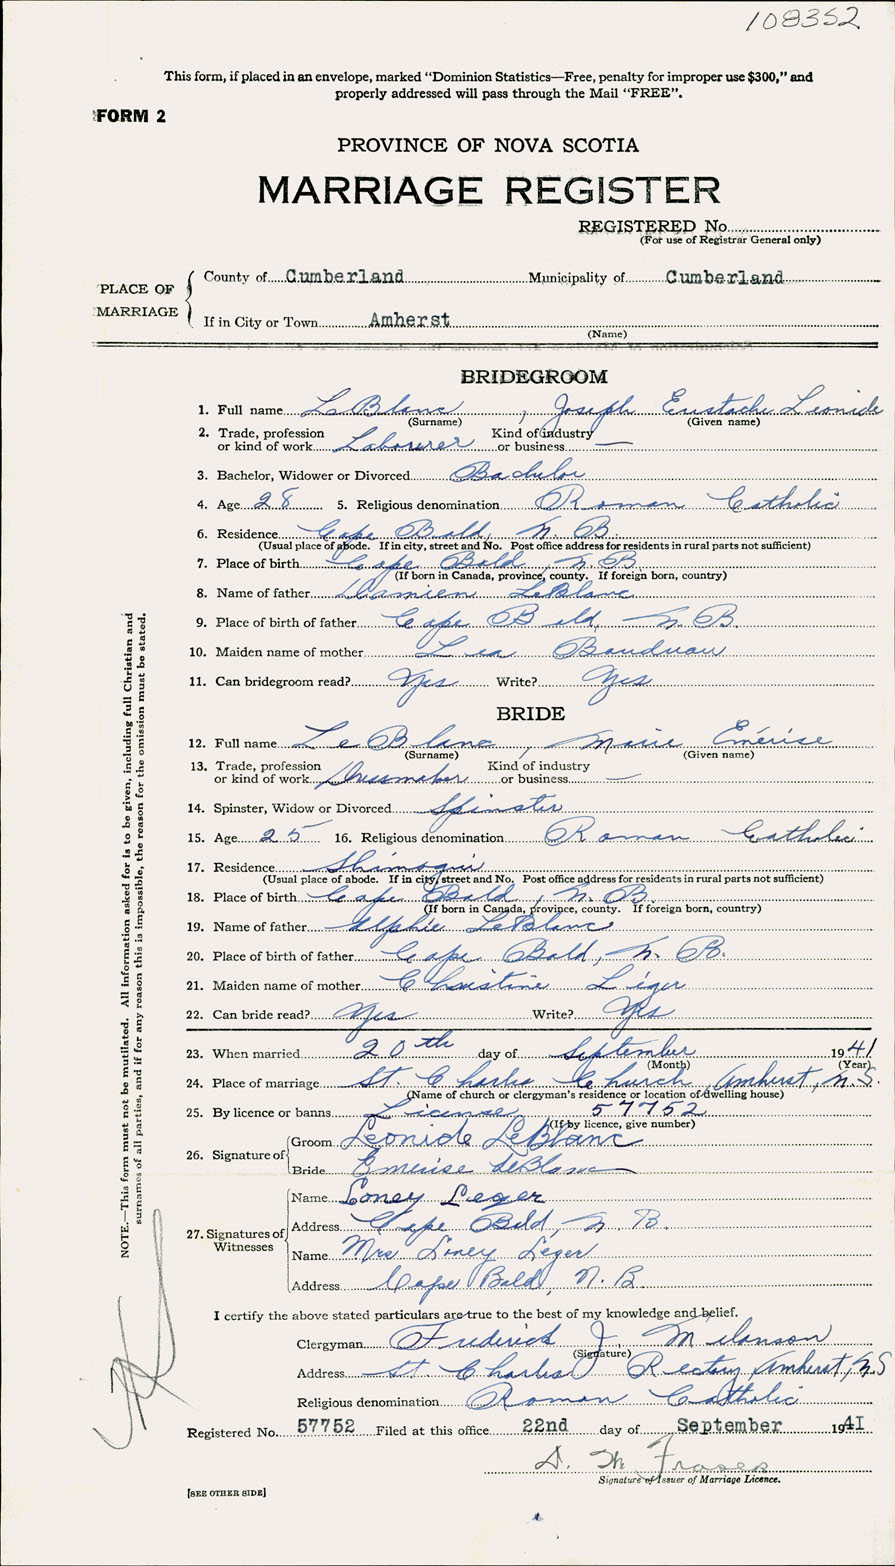 108352
This form, if placed in an envelope, marked "Dominion Statistics—Free, penalty for improper use $300," and
properly addressed will pass through the Mail "FREE".
FORM 2
PROVINCE OF NOVA SCOTIA
MARRIAGE REGISTER
REGISTERED No.
(For use of Registrar General only)
PLACE OF MARRIAGE
County of Cumberland Municipality of Cumberland
If in City or Town Amherst
(Name)
BRIDEGROOM
1. Full name LeBlanc, Joseph Eustache Leonide
(Surname) (Given name)
2. Trade, profession or kind of work Labourer Kind of industry or business —
3. Bachelor, Widower or Divorced Bachelor
4. Age 28 5. Religious denomination Roman Catholic
6. Residence Cape Bald, N. B.
(Usual place of abode. If in city, street and No. Post office address for residents in rural parts not sufficient)
7. Place of birth Cape Bald, N. B.
(If born in Canada, province, county. If foreign born, country)
8. Name of father Damien LeBlanc
9. Place of birth of father Cape Bald, N. B.
10. Maiden name of mother Lea
11. Can bridegroom read? Yes Write? Yes
BRIDE
12. Full name LeBlanc, Marie Emérise
(Surname) (Given name)
13. Trade, profession or kind of work Dressmaker Kind of industry or business —
14. Spinster, Widow or Divorced Spinster
15. Age 25 16. Religious denomination Roman Catholic
17. Residence Shimogui
(Usual place of abode. If in city, street and No. Post office address for residents in rural parts not sufficient)
18. Place of birth Cape Bald, N. B.
(If born in Canada, province, county. If foreign born, country)
19. Name of father Alphie LeBlanc
20. Place of birth of father Cape Bald, N. B.
21. Maiden name of mother Christine Léger
22. Can bride read? Yes Write? Yes
23. When married 20th day of September 1941
(Month) (Year)
24. Place of marriage St. Charles Church, Amherst, N.S.
(Name of church or clergyman's residence or location of dwelling house)
25. By licence or banns License 57752
(If by licence, give number)
26. Signature of
Groom Leonide LeBlanc
Bride Emerise LeBlanc
27. Signatures of Witnesses
Name Loney Leger
Address Cape Bald, N. B.
Name Mrs Loney Leger
Address Cape Bald, N. B
I certify the above stated particulars are true to the best of my knowledge and belief.
Clergyman Frederick J. Melanson
(Signature)
Address St. Charles Rectory, Amherst, N.S
Religious denomination Roman Catholic
Registered No. 57752 Filed at this office 22nd day of September 1941
Fraser
Signature of Issuer of Marriage Licence.
[SEE OTHER SIDE]
NOTE.—This form must not be mutilated. All information asked for is to be given, including full Christian and
surnames of all parties, and if for any reason this is impossible, the reason for the omission must be stated.